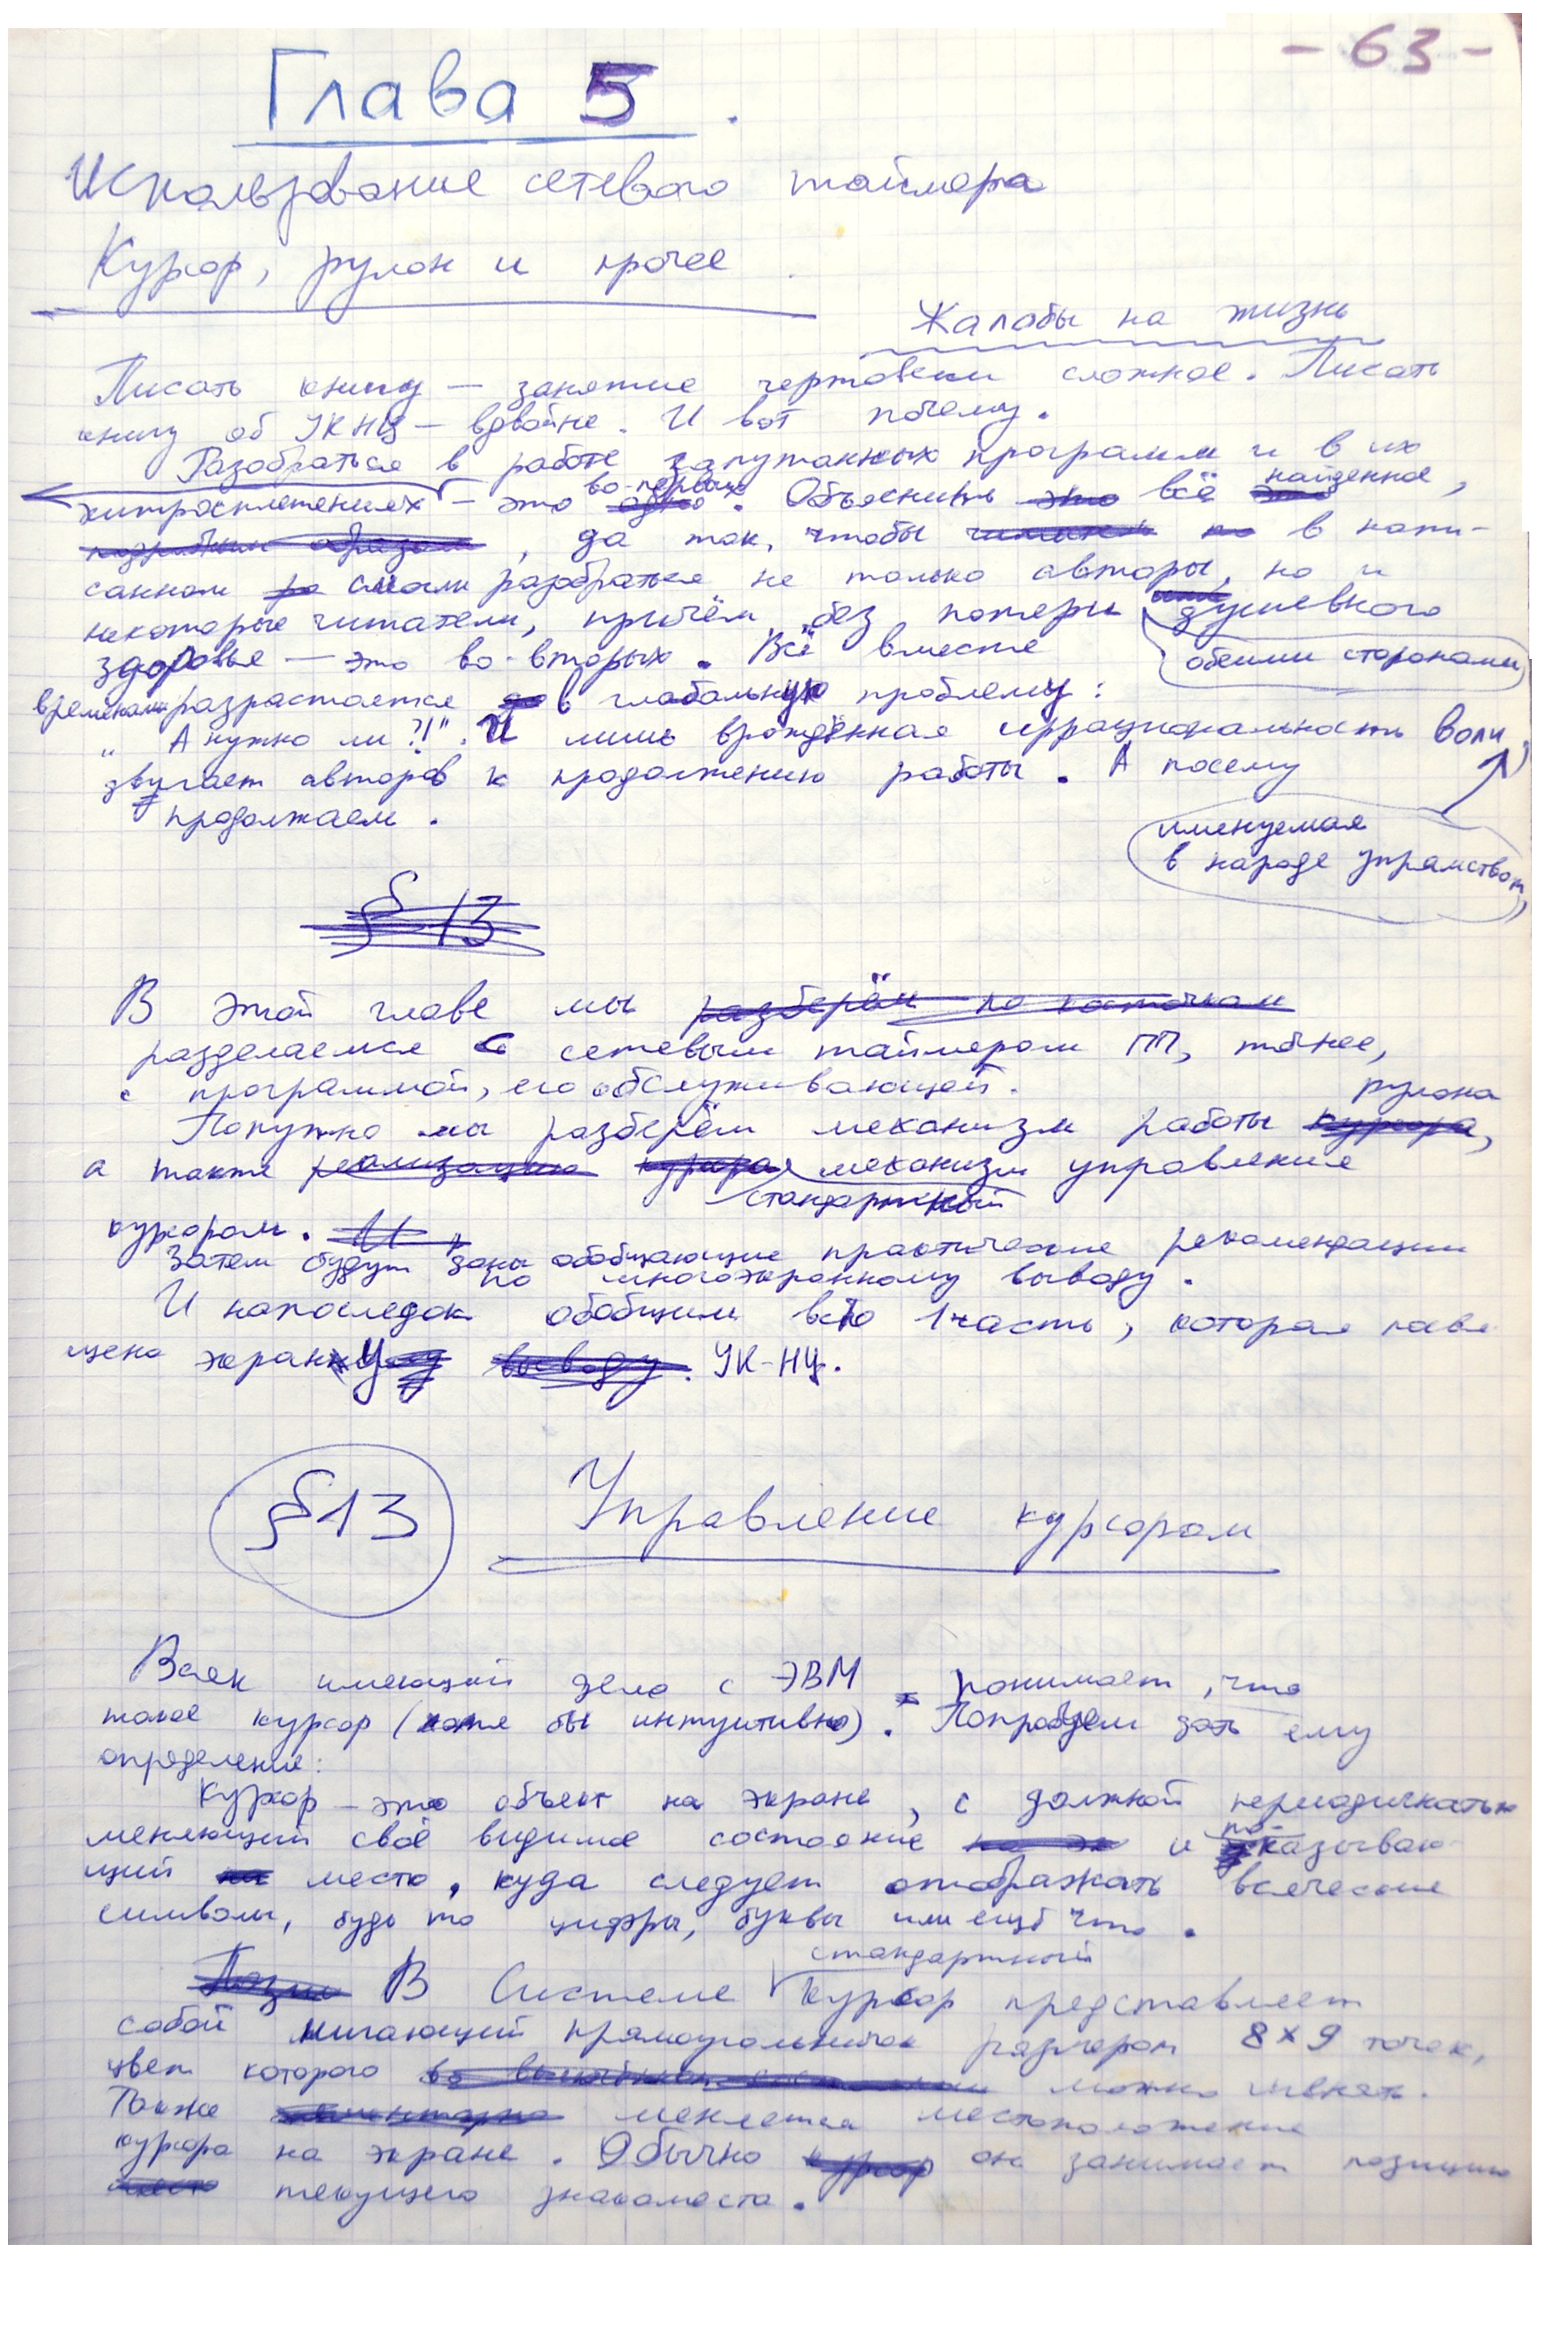 - 63 -
Глава 5.
Использование сетевого таймера
Курсор, рулон и прочее.
Жалобы на жизнь
Писать книгу — занятие чертовски сложное. Писать
книгу об УКНЦ — вдвойне. И вот почему.
Разобраться в работе запутанных программ и в их
хитросплетениях — это во-первых. Объяснить всё найденное,
да так, чтобы в напи-
санном смогли разобраться не только авторы, но и
некоторые читатели, причём без потери обеими сторонами душевного
здоровья — это во-вторых. Всё вместе
временами разрастается в глобальную проблему:
„А нужно ли?!". И лишь врождённая иррациональность воли,
именуемая
в народе упрямством,
двигает авторов к продолжению работы. А посему
продолжаем.
§ 13
В этой главе мы разберём по косточкам
разделаемся с сетевым таймером ПП, точнее,
с программой, его обслуживающей.
Попутно мы разберём механизм работы рулона,
а также стандартный механизм управления
курсором.
Затем будут даны обобщающие практические рекомендации
по многоэкранному выводу.
И напоследок обобщим всю 1 часть, которая посвя-
щена экрану УК-НЦ.
§ 13 Управление курсором
Всяк имеющий дело с ЭВМ понимает, что
такое курсор (хотя бы интуитивно). Попробуем дать ему
определение:
Курсор — это объект на экране, с должной периодичностью
меняющий своё видимое состояние и показываю-
щий место, куда следует отображать всяческие
символы, будь то цифры, буквы или ещё что.
В Системе стандартный курсор представляет
собой мигающий прямоугольничек размером 8×9 точек,
цвет которого можно менять.
Также меняется местоположение
курсора на экране. Обычно он занимает позицию
текущего знакоместа.